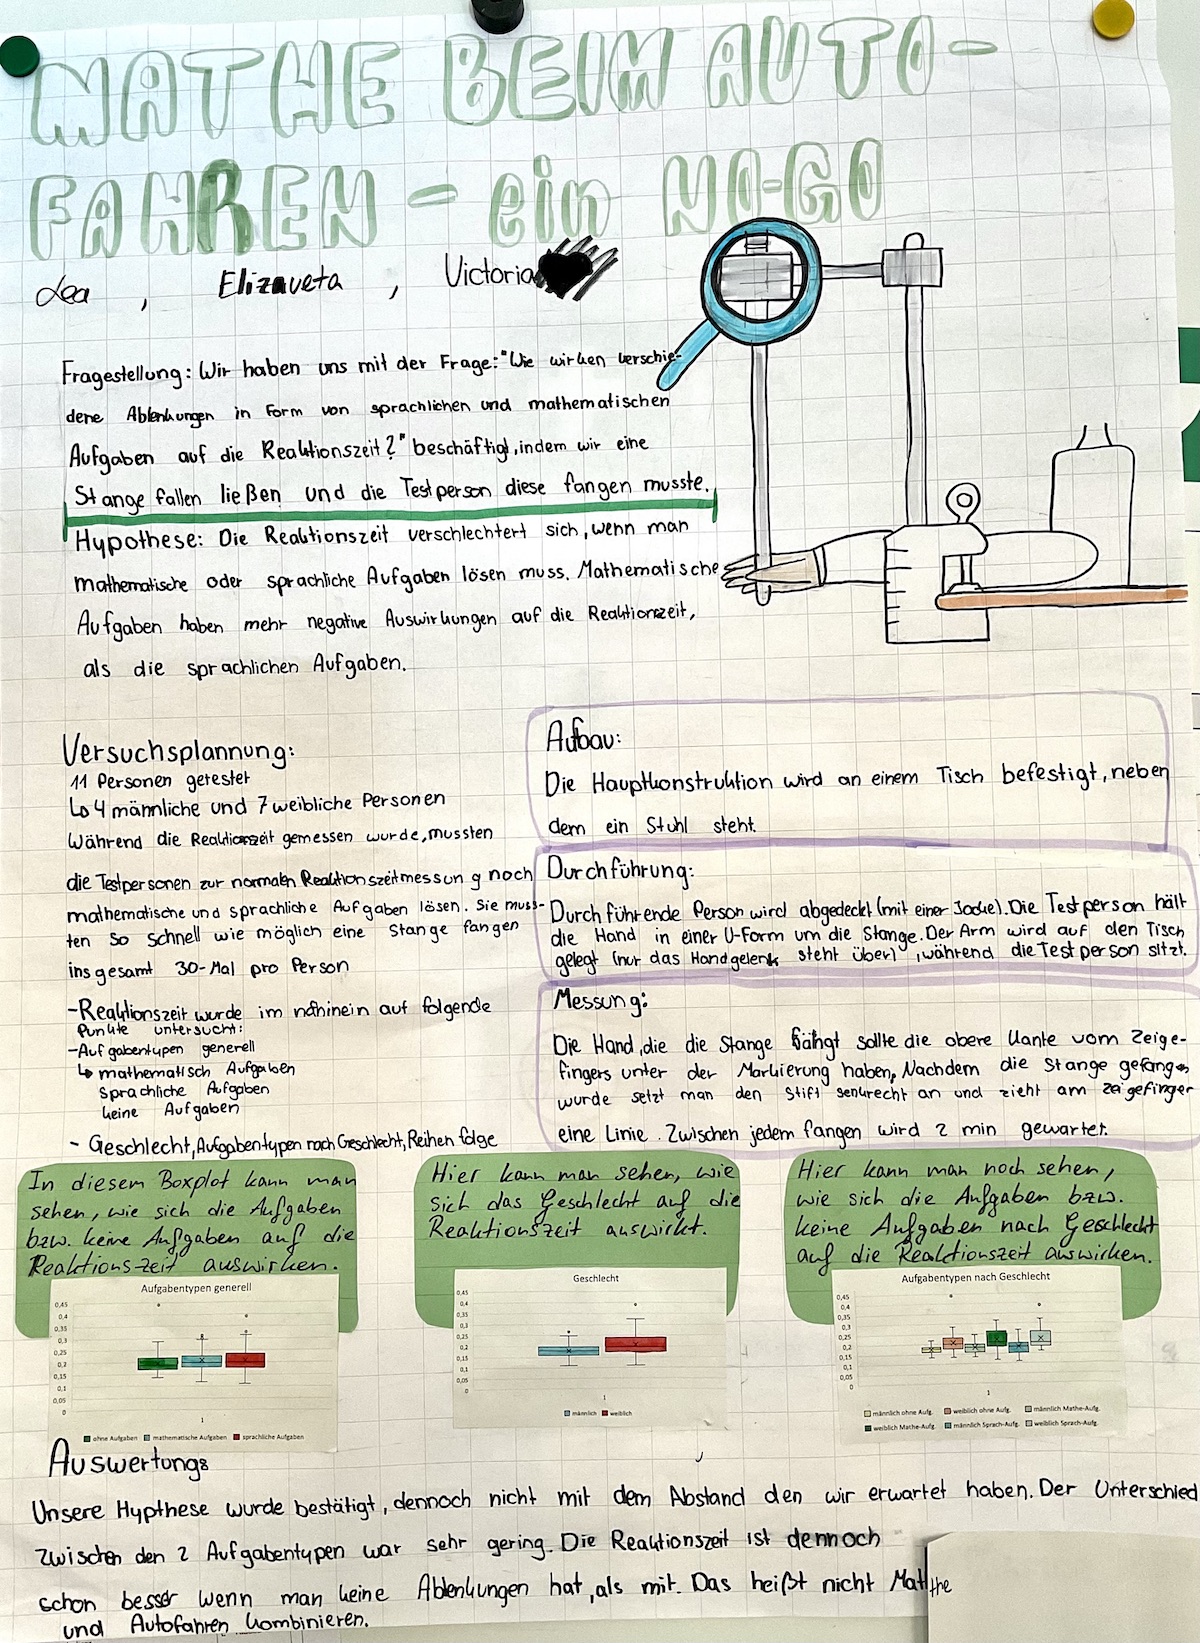 MATHE BEIM AUTO-
FAHREN - ein NO-GO
Lea , Elizaveta , Victoria
Fragestellung: Wir haben uns mit der Frage: "Wie wirken verschie-
dene Ablenkungen in Form von sprachlichen und mathematischen
Aufgaben auf die Reaktionszeit?" beschäftigt, indem wir eine
Stange fallen ließen und die Testperson diese fangen musste.
Hypothese: Die Reaktionszeit verschlechtert sich, wenn man
mathematische oder sprachliche Aufgaben lösen muss. Mathematische
Aufgaben haben mehr negative Auswirkungen auf die Reaktionszeit,
als die sprachlichen Aufgaben.
Versuchsplannung:
11 Personen getestet
↳ 4 männliche und 7 weibliche Personen
Während die Reaktionszeit gemessen wurde, mussten
die Testpersonen zur normalen Reaktionszeitmessung noch
mathematische und sprachliche Aufgaben lösen. Sie muss-
ten so schnell wie möglich eine Stange fangen
insgesamt 30-Mal pro Person
-Reaktionszeit wurde im nähinein auf folgende
Punkte untersucht:
-Aufgabentypen generell
↳ mathematisch Aufgaben
sprachliche Aufgaben
keine Aufgaben
- Geschlecht, Aufgabentypen nach Geschlecht, Reihenfolge
Aufbau:
Die Hauptkonstruktion wird an einem Tisch befestigt, neben
dem ein Stuhl steht.
Durchführung:
Durchführende Person wird abgedeckt (mit einer Jacke). Die Testperson hält
die Hand in einer U-Form um die Stange. Der Arm wird auf den Tisch
gelegt (nur das Handgelenk steht über), während die Testperson sitzt.
Messung:
Die Hand, die die Stange fähgt sollte die obere Kante vom Zeige-
fingers unter der Markierung haben. Nachdem die Stange gefangen
wurde setzt man den Stift senkrecht an und zieht am Zeigefinger
eine Linie. Zwischen jedem fangen wird 2 min gewartet.
In diesem Boxplot kann man
sehen, wie sich die Aufgaben
bzw. keine Aufgaben auf die
Reaktionszeit auswirken.
Aufgabentypen generell
0,45
0,4
0,35
0,3
0,25
0,2
0,15
0,1
0,05
0
1
ohne Aufgaben mathematische Aufgaben sprachliche Aufgaben
Hier kann man sehen, wie
sich das Geschlecht auf die
Reaktionszeit auswirkt.
Geschlecht
0,45
0,4
0,35
0,3
0,25
0,2
0,15
0,1
0,05
0
1
männlich weiblich
Hier kann man noch sehen,
wie sich die Aufgaben bzw.
keine Aufgaben nach Geschlecht
auf die Reaktionszeit auswirken.
Aufgabentypen nach Geschlecht
0,45
0,4
0,35
0,3
0,25
0,2
0,15
0,1
0,05
0
1
männlich ohne Aufg. weiblich ohne Aufg. männlich Mathe-Aufg.
weiblich Mathe-Aufg. männlich Sprach-Aufg. weiblich Sprach-Aufg.
Auswertung:
Unsere Hypthese wurde bestätigt, dennoch nicht mit dem Abstand den wir erwartet haben. Der Unterschied
zwischen den 2 Aufgabentypen war sehr gering. Die Reaktionszeit ist dennoch
schon besser wenn man keine Ablenkungen hat, als mit. Das heißt nicht Mathe
und Autofahren kombinieren.